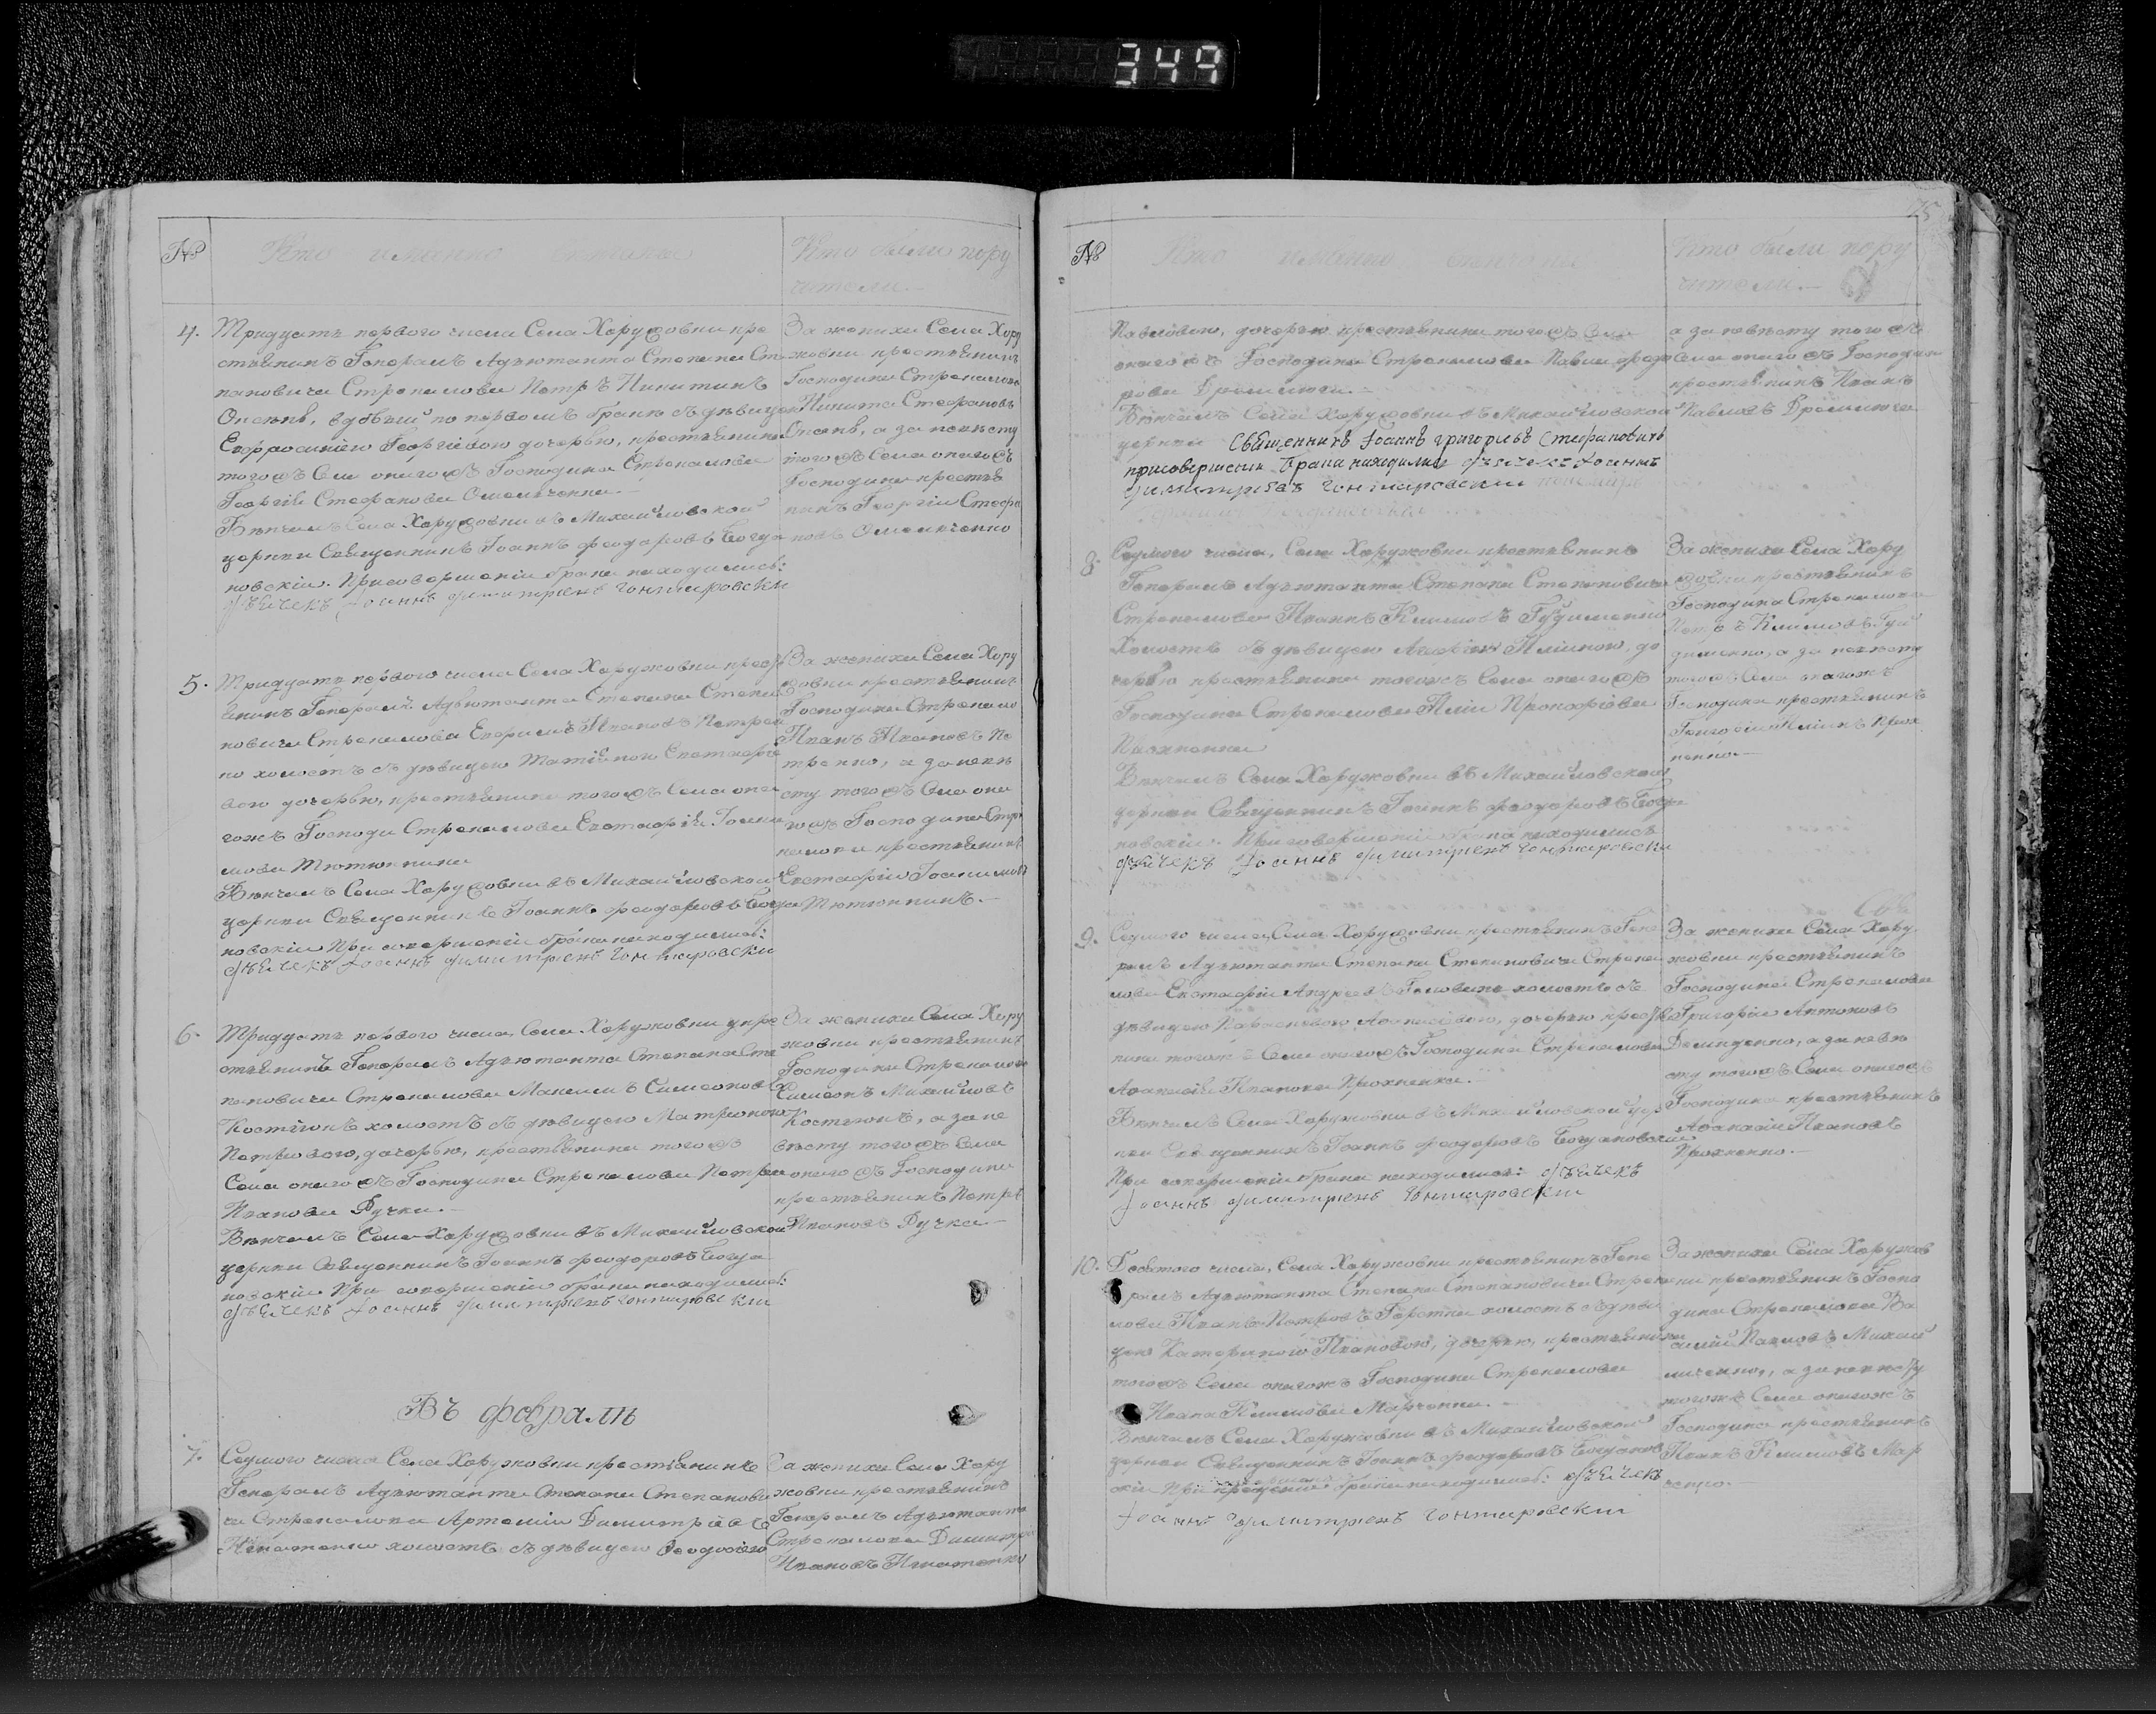 349
№ Кто именно венчаны
Кто были пору
чители.-
4. Тридцать первого числа Села Харужовки кре
стьянинъ Генералъ Адъютанта Степана Сте
пановича Стрекалова Петръ Никитинъ
вдовый по первомъ бракѣ съ дѣвицею
Евфросиніею Георгіевою дочерью, крестьянина
того жъ Села онаго жъ Господина Стрекалова
Георгія Стефанова Омельченка.-
Вѣнчалъ Села Харужовки въ Михайловской
церкви Священникъ Іоаннъ Феодоровъ Богда
новскій. При совершеніи брака находились:
Дьячекъ Іоаннъ Димитріевъ Гонтаровски
За жениха Села Хару
жовки крестьянинъ
Господина Стрекалова
Никита Стефановъ
а за невѣсту
того жъ Села онаго жъ
Господина крестья
нинъ Георгій Стефа
новъ Омельченко
5. Тридцать первого числа Села Харужовки крест
янинъ Генералъ Адъютанта Степана Степа
новича Стрекалова Ефремъ Ивановъ Петрен
ко холостъ съ дѣвицею Евстафіе
вою дочерью, крестьянина того жъ Села она
гожъ Господи Стрекалова Евстафія Іоаки
мова Тютюнника
Вѣнчалъ Села Харужовки въ Михайловской
церкви Священникъ Іоаннъ Феодоровъ Богда
новскій При совершеніи брака находились:
Дьячекъ Іоаннъ Димитріевъ Гонтаровски
За жениха Села Хару
жовки крестьянинъ
Господина Стрекало
Иванъ Ивановъ Пе
тренко, а за невѣ
сту того жъ Села она
го жъ Господина Стре
калова крестьянинъ
Евстафій Іоакимовъ
Тютюнникъ.-
6. Тридцать первого числа, Села Харужовки кре
стьянинъ Генералъ Адъютанта Степана Сте
пановича Стрекалова Максимъ Симеоновъ
Костюкъ холостъ съ дѣвицею Матроною
Петровою, дочерью, крестьянина того жъ
Села онаго жъ Господина Стрекалова Петра
Иванова Дучки.-
Вѣнчалъ Села Харужовки въ Михайловской
церкви Священникъ Іоаннъ Феодоровъ Богда
новскій При совершеніи брака находились:
Дьячекъ Іоаннъ Димитріевъ Гонтаровски
За жениха Села Хару
жовки крестьянинъ
Господина Стрекалова
Симеонъ Михайловъ
Костюкъ, а за не
вѣсту того жъ Села
онаго жъ Господина
крестьянинъ Петръ
Ивановъ Дучка-
Въ февралѣ
7. Седмого числа Села Харужовки крестьянинъ
Генералъ Адъютанта Степана Степанови
ча Стрекалова Артемій Димитріевъ
Игнатенко холостъ съ дѣвицею Феодосіею
За жениха Села Хару
жовки крестьянинъ
Генералъ Адъютанта
Стрекалова Димитрій
Ивановъ Игнатенко
№ Кто именно венчаны
Кто были пору
чители.-
Павловою, дочерью крестьянина того жъ Села
онаго жъ Господина Стрекалова Павла Федо
рова
Вѣнчалъ Села Харужовки въ Михайловской
церкви Священникъ Іоаннъ Григорьевъ Стефановичъ
при совершеніи брака находились Дьячекъ Іоаннъ
Димитріевъ Гонтаровский
а за невѣсту того жъ
Села онаго жъ Господина
крестьянинъ Иванъ
Павловъ
8. Седмого числа, Села Харужовки крестьянинъ
Генералъ Адъютанта Степана Степановича
Стрекалова Иванъ Климовъ Гудименко
Холостъ съ дѣвицею Агафіею Иліиною, до
черью крестьянина тогожъ Села онаго жъ
Господина Стрекалова Иліи Прокофіева
Прохненка
Вѣнчалъ Села Харужовки въ Михайловской
церкви Священникъ Іоаннъ Феодоровъ Богда
новскій. При совершеніи брака находились
Дьячекъ Іоаннъ Димитріевъ Гонтаровски
За жениха Села Хару
жовки крестьянинъ
Господина Стрекалова
Климовъ Гу
дименко, а за невѣсту
того жъ Села онагожъ
Господина крестьянинъ
Григорій Иліинъ Прох
ненко.-
9. Седмого числа, Села Харужовки крестьянинъ Гене
ралъ Адъютанта Степана Степановича Стрека
лова Евстафій Андреевъ Головко холостъ съ
дѣвицею Параскевою Афанасіевою, дочерью крестья
нина тогожъ Села онаго жъ Господина Стрекалова
Афанасія Иванова Прохненка.-
Вѣнчалъ Села Харужовки въ Михайловской цер
кви Священникъ Іоаннъ Феодоровъ Богдановскій
При совершеніи брака находились: Дьячекъ
Іоаннъ Димитріевъ Гонтаровски
За жениха Села Хару
жовки крестьянинъ
Господина Стрекалова
Григорій Антоновъ
Демиденко, а за невѣ
сту того жъ Села онаго жъ
Господина крестьянинъ
Афанасій Ивановъ
Прохненко.-
10. Девятого числа, Села Харужовки крестьянинъ Гене
ралъ Адъютанта Степана Степановича Стрека
лова Иванъ Петровъ холостъ съ дѣви
цею Катериною Ивановою, дочерью, крестьянина
того жъ Села онагожъ Господина Стрекалова
Ивана Климова Марченка.-
Вѣнчалъ Села Харужовки въ Михайловской
церкви Священникъ Іоаннъ Феодоровъ Богданов
скій При совершеніи брака находились: Дьячекъ
Іоаннъ Димитріевъ Гонтаровски
За жениха Села Харужов
ки крестьянинъ Госпо
дина Стрекалова Ва
силій Павловъ Михай
личенко, а за невѣсту
тогожъ Села онагожъ
Господина крестьянинъ
Иванъ Климовъ Мар
ченко.